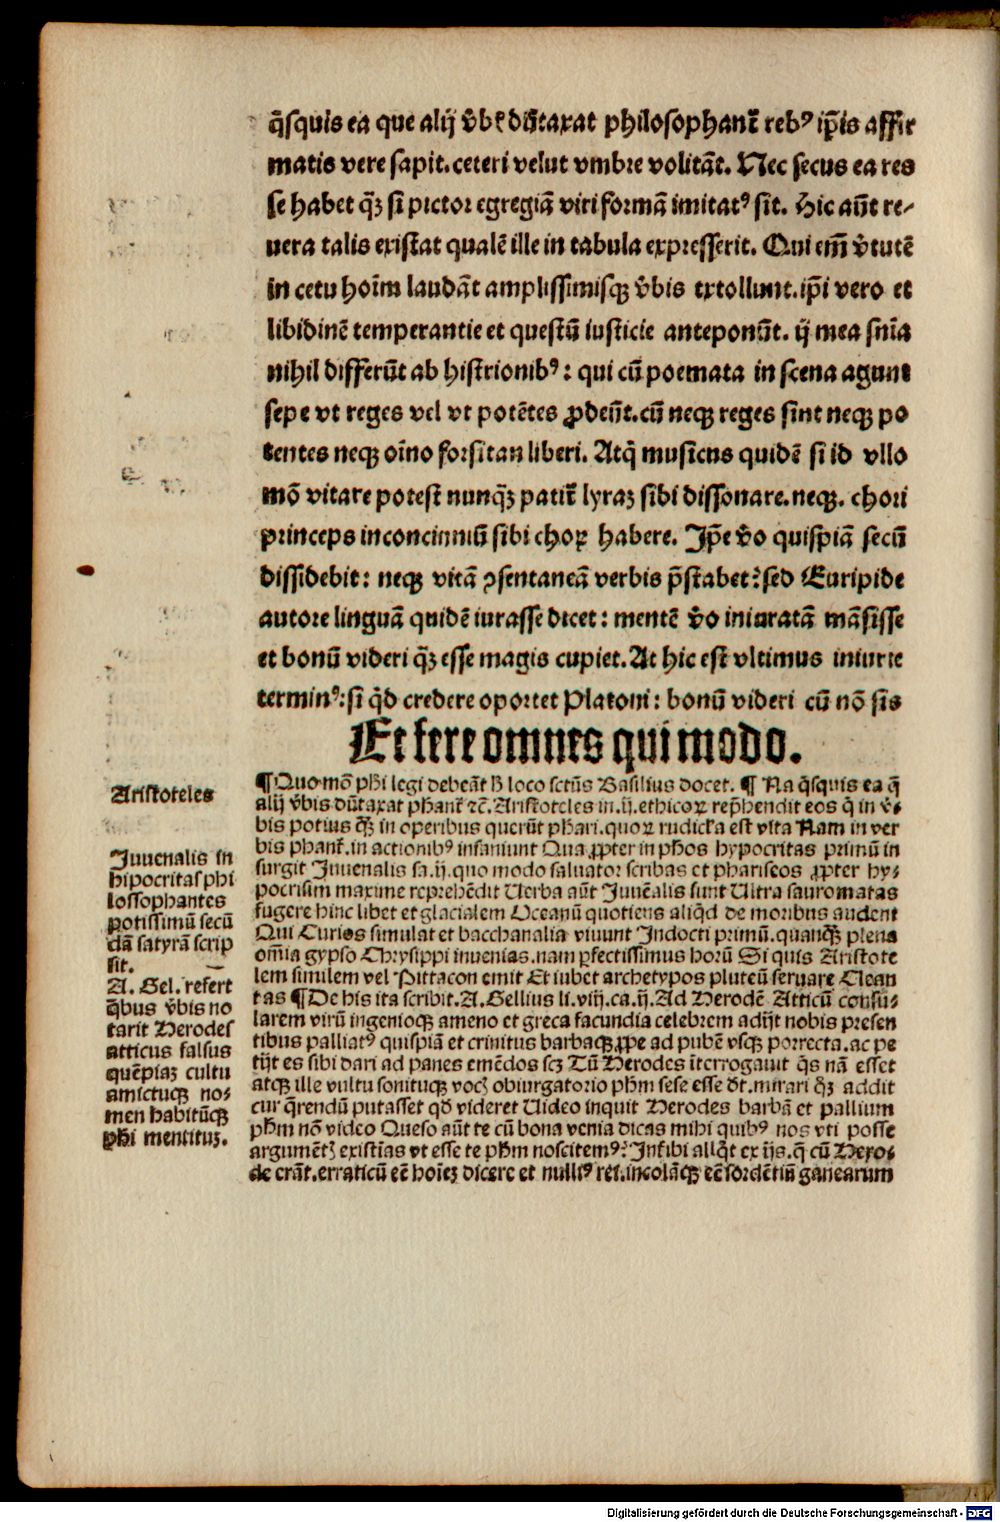 q̄squis ea que alij v̄bꝭ dūtaxat philosophant᷑ rebꝰ ip̄is affir
matis vere sapit. ceteri velut vmbre volitāt. Nec secus ea res
se habet q̄ꝫ si pictor egregiā viri formā imitatꝰ sit. Hic aūt re-
uera talis existat qualē ille in tabula expresserit. Qui em̄ v̄tutē
in cetu hoīm laudāt amplissimisqꝫ v̄bis extollunt. ip̄i vero et
libidinē temperantie et questū iusticie anteponūt. ij mea sn̄ia
nihil differūt ab histrionibꝰ: qui cū poemata in scena agunt
sepe vt reges vel vt potētes ꝓdeūt. cū neqꝫ reges sint neqꝫ po
tentes neqꝫ oīno forsitan liberi. Atq̄ musicus quidē si id vllo
mō vitare potest nunq̄ꝫ patit᷑ lyraꝫ sibi dissonare. neqꝫ. chori
princeps inconcinnū sibi choꝝ habere. Ip̄e v̄o quispiā secū
dissidebit: neqꝫ vitā ꝯsentaneā verbis p̄stabet? sed Euripide
autore linguā quidē iurasse dicet: mentē v̄o iniuratā māsisse
et bonū videri q̄ꝫ esse magis cupiet. At hic est vltimus iniurie
terminꝰ: si q̄d credere oportet Platoni: bonū videri cū nō sis
Et fere omnes qui modo.
¶ Quo mō ph̄i legi debeāt h̄ loco sctūs Basilius docet. ¶ Nā q̄squis ea q̄
alij v̄bis dūtaxat phant᷑ ⁊c̄. Aristoteles in .ij. ethicoꝝ rep̄hendit eos q̄ in v̄-
bis potius q̄ꝫ in operibus querūt ph̄ari. quoꝝ rudicĺa est vita Nam in ver
bis phant᷑. in actionibꝰ insaniunt Qua ꝓpter in ph̄os hypocritas primū in
surgit Juuenalis sa. ij. quo modo saluator scribas et phariseos ꝓpter hy-
pocrisim maxime reprehēdit Uerba aūt Juuēalis sunt Ultra sauromatas
fugere hinc libet et glacialem Oceanū quotiens aliq̄d de moribus audent
Qui Curios simulat et bacchanalia viuunt Indocti primū. quanq̄ꝫ plena
om̄ia gypso Chrysippi inuenias. nam ꝑfectissimus horū Si quis Aristote
lem similem vel Pittacon emit Et iubet archetypos pluteū seruare Clean
tas ¶ De his ita scribit. A. Gellius li. viij. ca. ij. Ad Herodē Atticū consu-
larem virū ingenioqꝫ ameno et greca facundia celebrem adijt nobis presen
tibus palliatꝰ quispiā et crinitus barbaqꝫ ꝓpe ad pubē vsqꝫ porrecta. ac pe
tijt es sibi dari ad panes emēdos scꝫ Tū Herodes īterrogauit q̄s nā esset
atqꝫ ille vultu sonituqꝫ vocꝭ obiurgatorio ph̄m sese esse d̄t. mirari q̄ꝫ addit
cur q̄rendū putasset qd̄ videret Uideo inquit Herodes barbā et pallium
ph̄m nō video Queso aūt te cū bona venia dicas mihi quibꝰ nos vti posse
argumētꝭ existīas vt esse te ph̄m noscitemꝰ? Int᷑ibi aliq̄t ex ijs. q̄ cū Hero-
de erāt. erraticū eē hoīeꝫ dicere et nulliꝰ rei. incolāqꝫ eē sordētiū ganearum
Aristoteles
Juuenalis in
hipocritas phi
lossophantes
potissimū secū
dā satyrā scrip
sit.
A. Gel. refert
q̄bus v̄bis no
tarit Herodes
atticus falsus
quēpiaꝫ cultu
amictuqꝫ no-
men habitūqꝫ
ph̄i mentituꝫ.
Digitalisierung gefördert durch die Deutsche Forschungsgemeinschaft - DFG